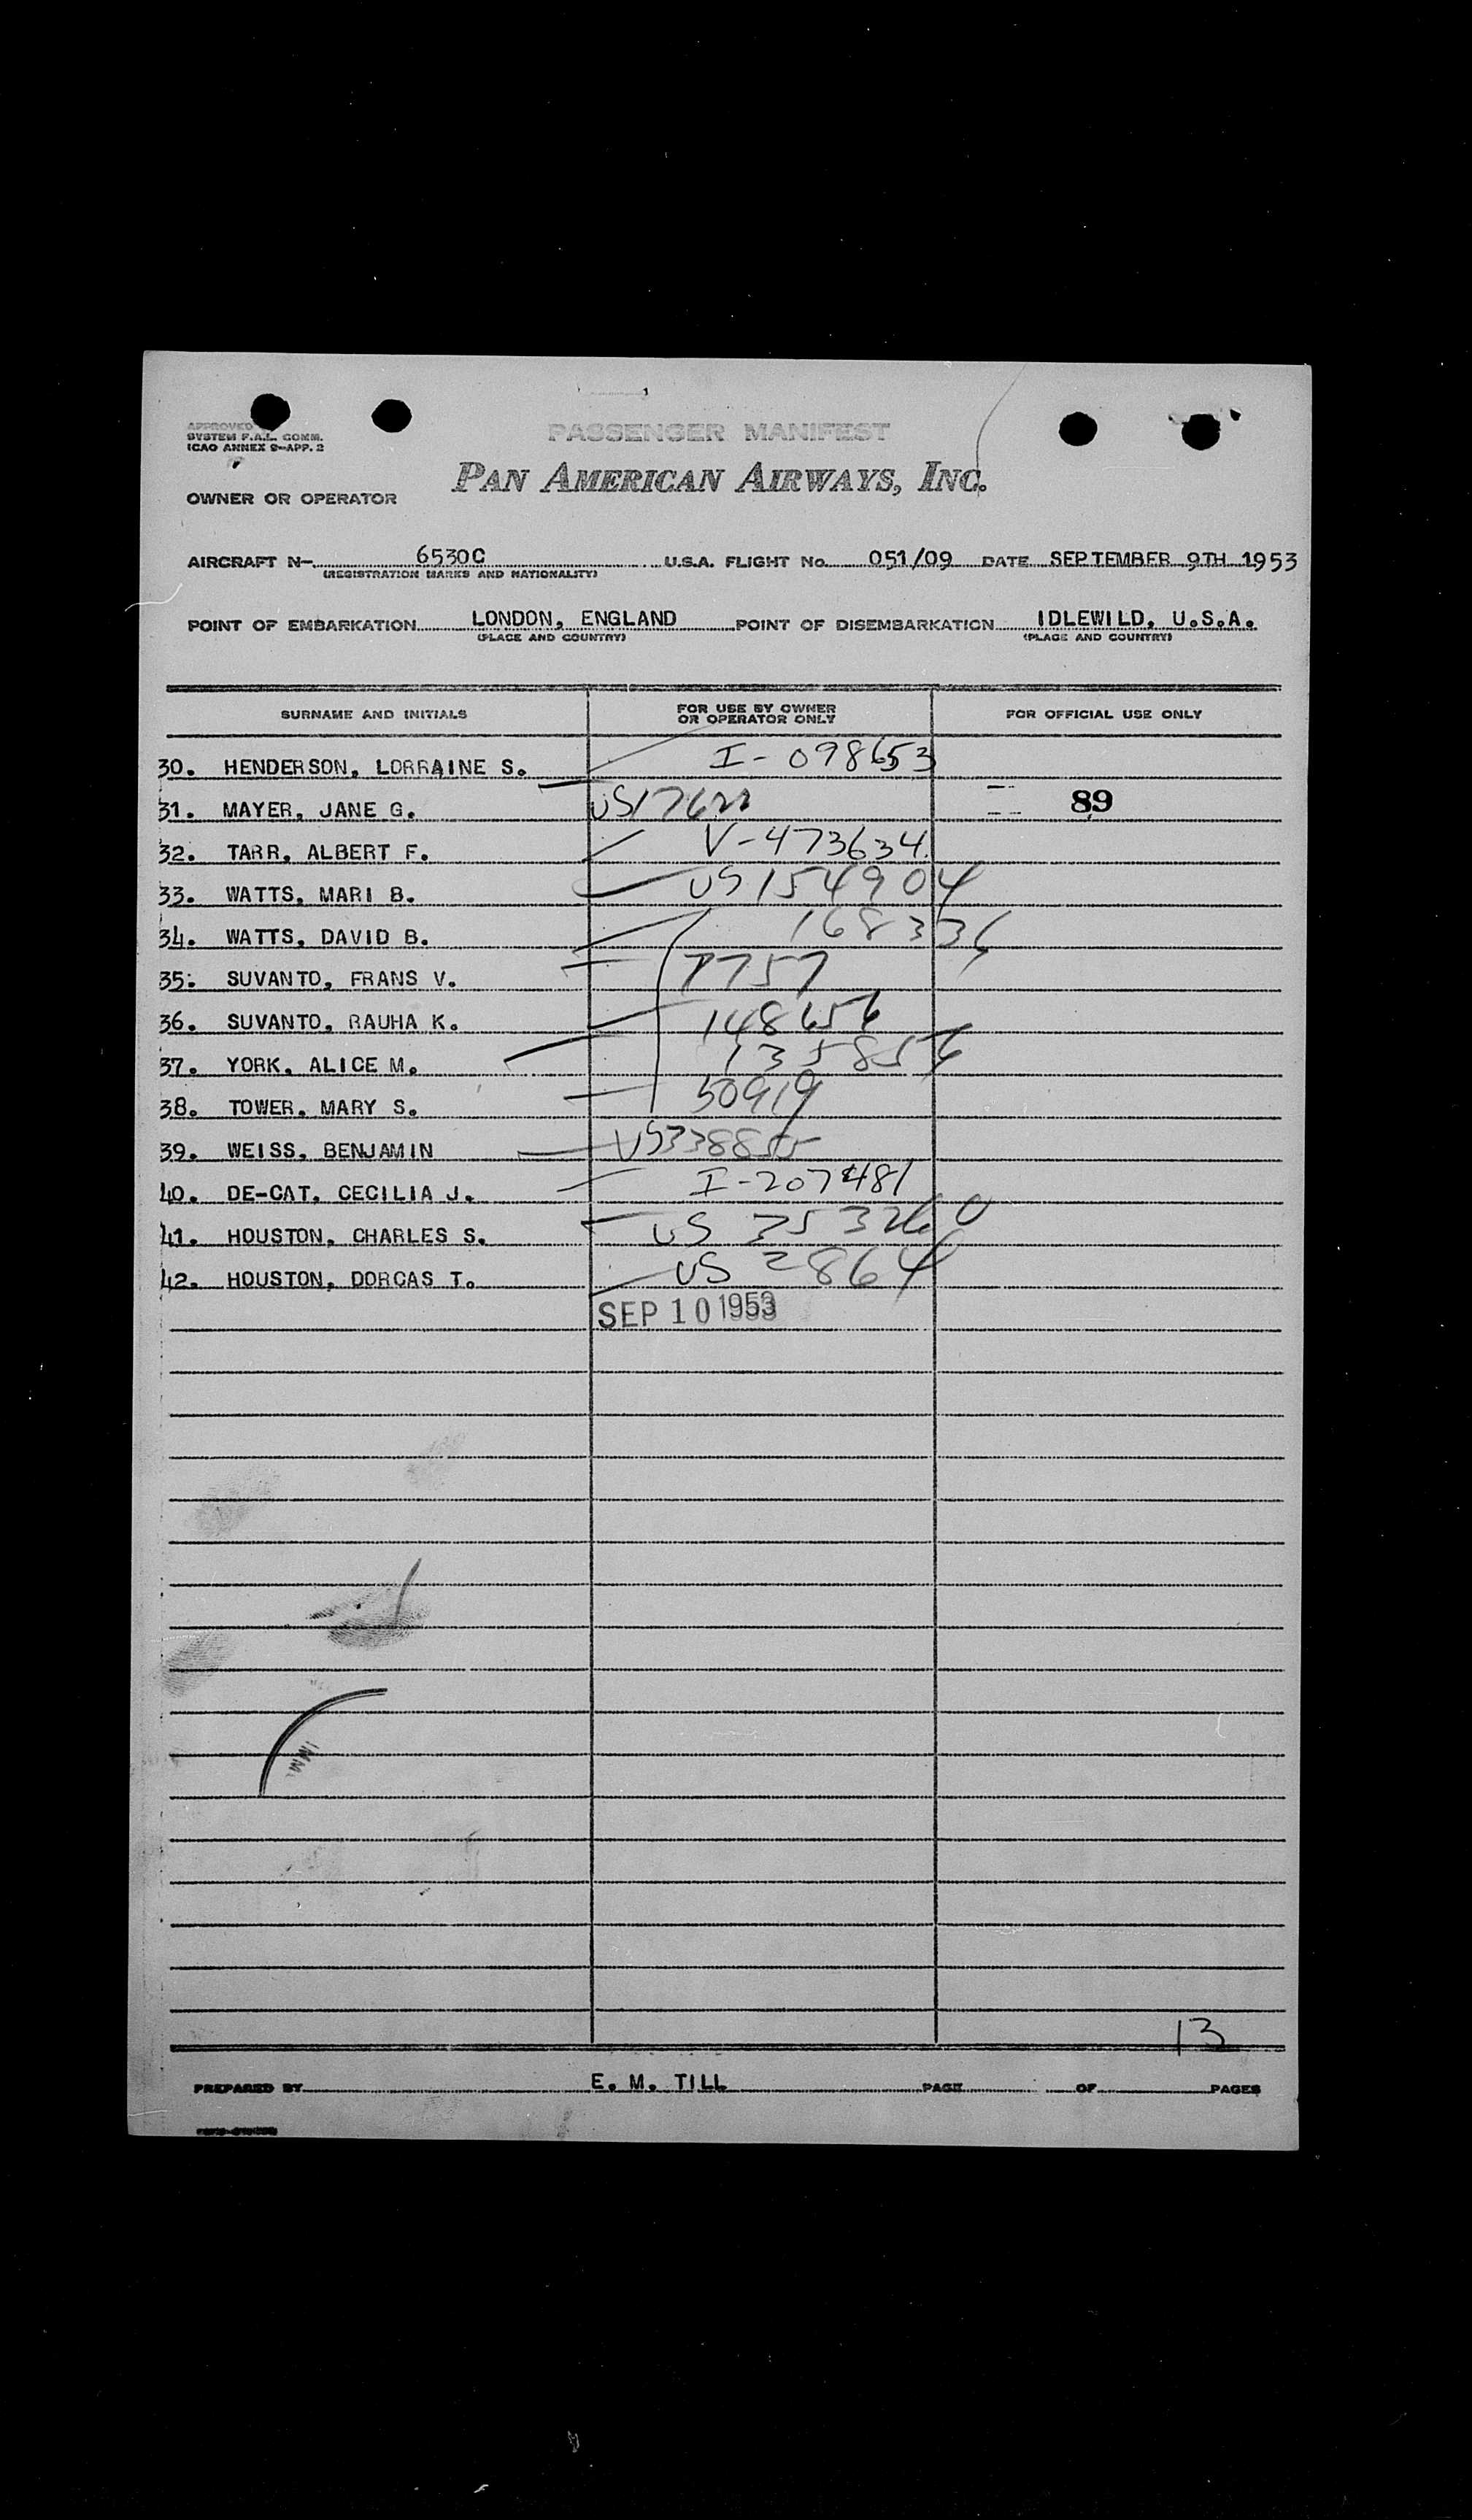 APPROVED
SYSTEM F.A.L. COMM.
ICAO ANNEX 9-APP. 2
PASSENGER MANIFEST
PAN AMERICAN AIRWAYS, INC.
OWNER OR OPERATOR
AIRCRAFT N- 6530C U.S.A. FLIGHT No. 051/09 DATE SEPTEMBER 9TH 1953
(REGISTRATION MARKS AND NATIONALITY)
POINT OF EMBARKATION LONDON, ENGLAND POINT OF DISEMBARKATION IDLEWILD, U.S.A.
(PLACE AND COUNTRY) (PLACE AND COUNTRY)
SURNAME AND INITIALS FOR USE BY OWNER OR OPERATOR ONLY FOR OFFICIAL USE ONLY
30. HENDERSON, LORRAINE S. I-098653
31. MAYER, JANE G. 89
32. TARR, ALBERT F. V-473634
33. WATTS, MARI B. US 154904
34. WATTS, DAVID B. 168336
35. SUVANTO, FRANS V. 7757
36. SUVANTO, RAUHA K. 148656
37. YORK, ALICE M.
38. TOWER, MARY S. 50919
39. WEISS, BENJAMIN US338855
40. DE-CAT, CECILIA J. I-207481
41. HOUSTON, CHARLES S. US 353260
42. HOUSTON, DORCAS T. US 2864
SEP 10 1953
IMM.
13
PREPARED BY E. M. TILL PAGE OF PAGES